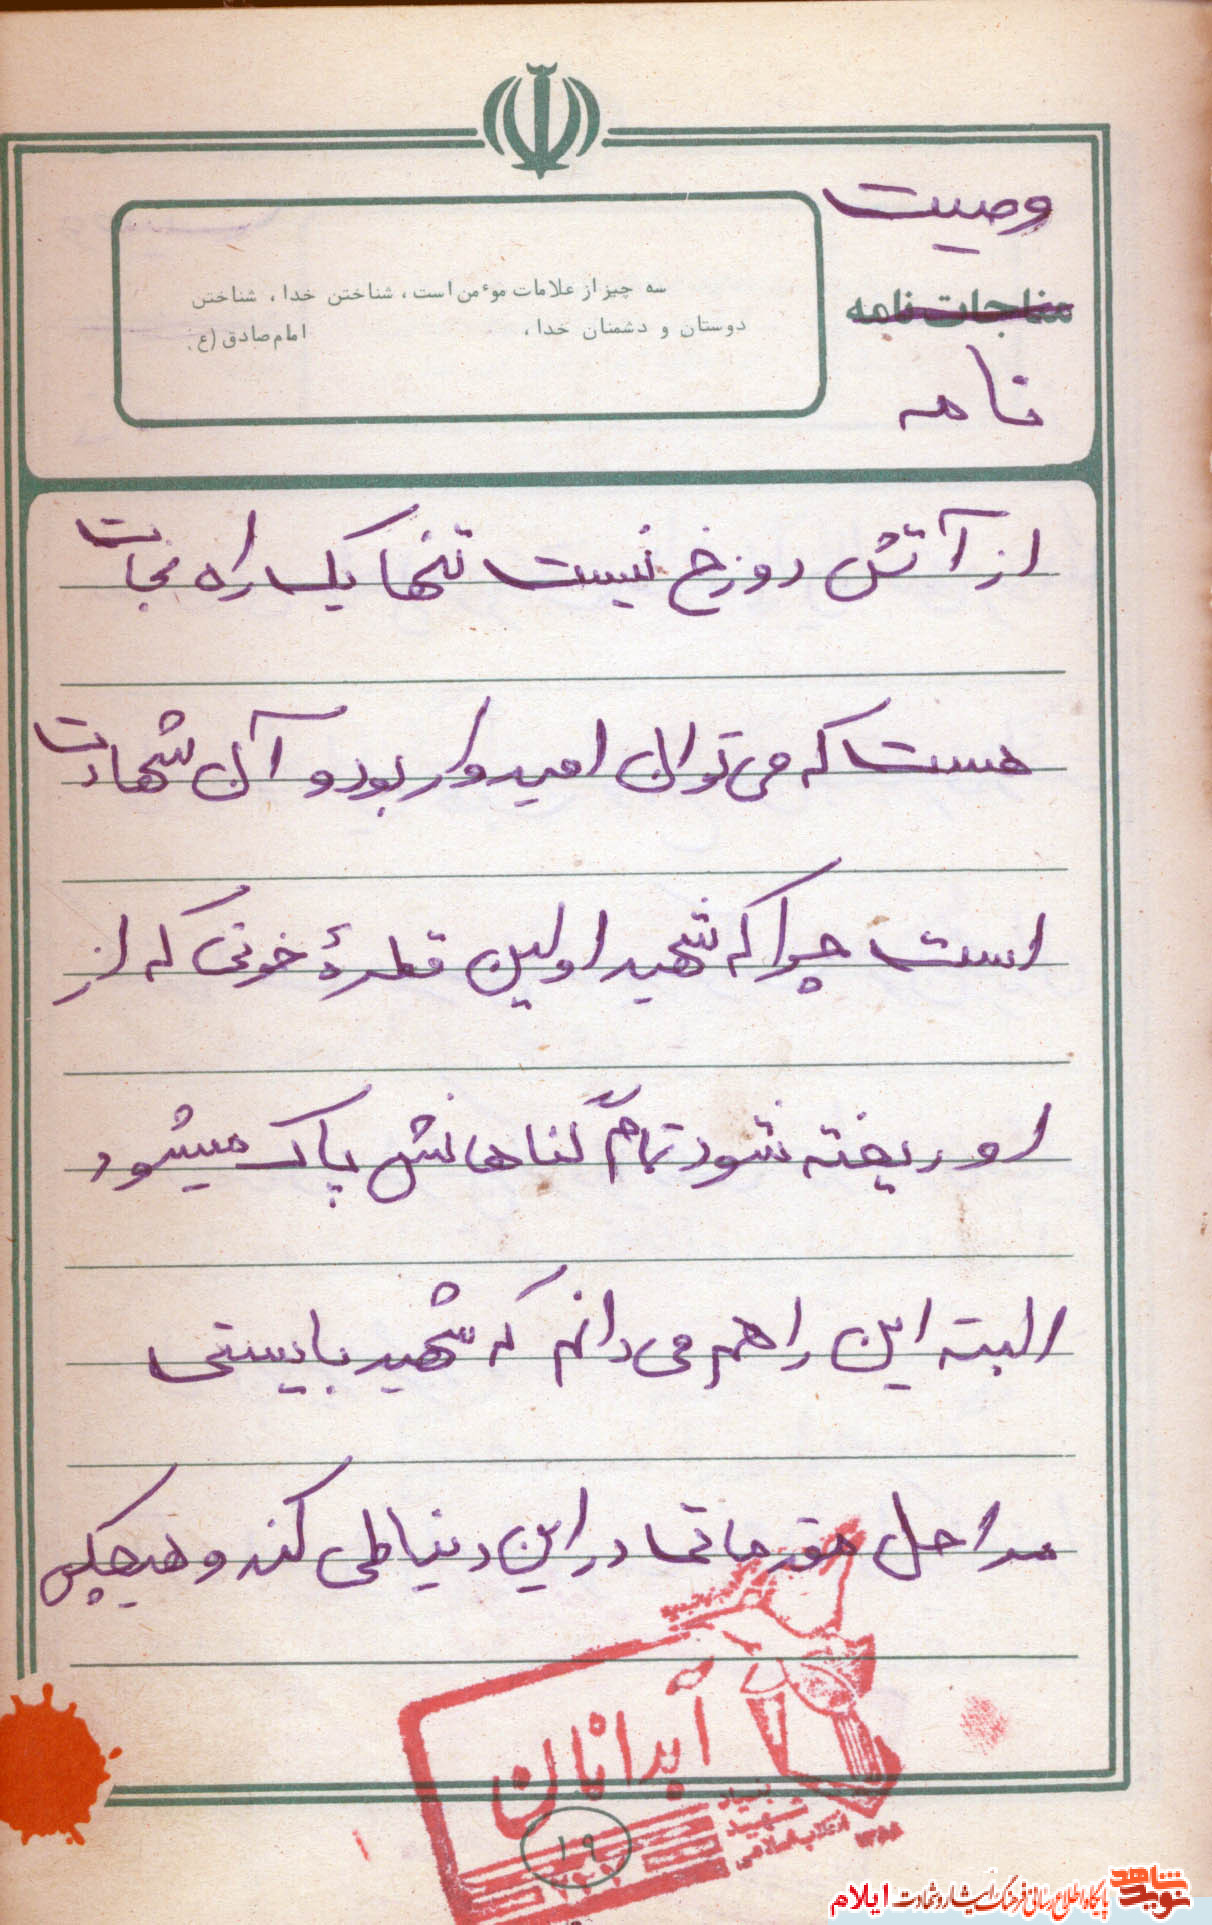 وصیت
مناجات نامه
نامه
سه چیز از علامات موٴمن است، شناختن خدا، شناختن
دوستان و دشمنان خدا،
امام صادق (ع)
از آتش دوزخ نیست تنها یک راه نجات
هست که می توان امیدوار بود و آن شهادت
است چرا که شهید اولین قطرهٔ خونی که از
او ریخته شود تمام گناهانش پاک میشود
البته این را هم می دانم که شهید بایستی
مراحل مقدماتی در این دنیا طی کند و هیچکس
آبدانان
بنیاد
شهید
انقلاب اسلامی
۱۹
نوید شاهد
پایگاه اطلاع رسانی فرهنگ ایثار و شهادت ایلام